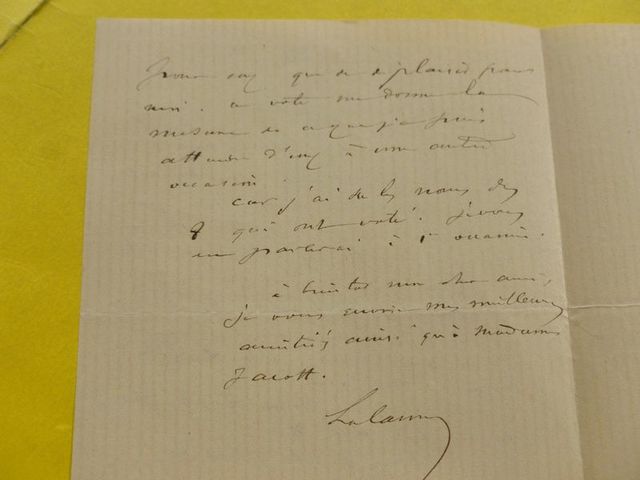 que de déplaisir pour
moi. ce vote me donne la
mesure de ce que je puis
attendre d'eux à une autre
occasion
car j'ai de les noms des
8 qui ont voté. Je vous
en parlerai à l'occasion.
à bientôt mon cher ami,
je vous envoie mes meilleures
amitiés ainsi qu'à Madame
Jacott.